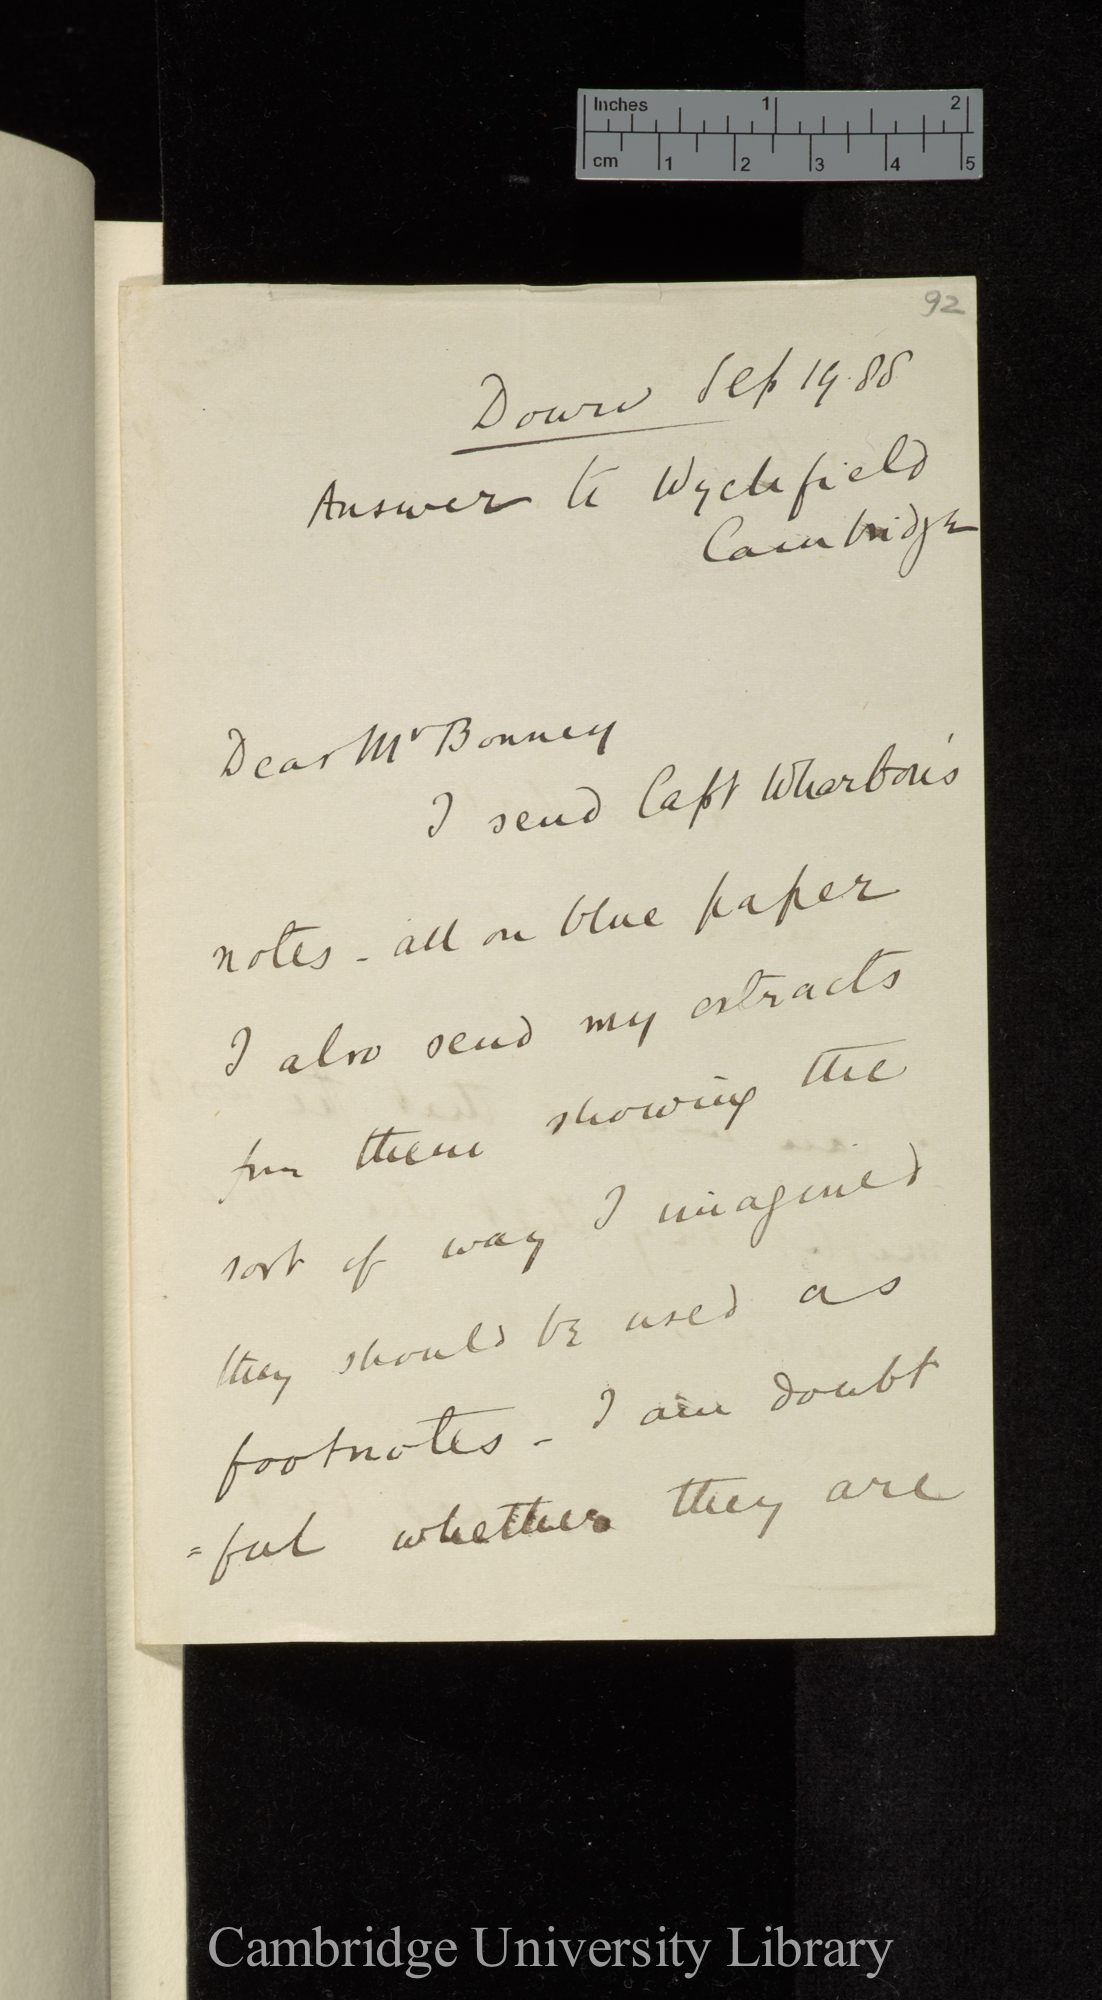 Inches 1 2
cm 1 2 3 4 5
92
Down Sep 19. 88
Answer to Wychfield
Cambridge
Dear Mr Bonney
I send Capt Wharton's
notes - all on blue paper
I also send my extracts
from them showing the
sort of way I imagined
they should be used as
footnotes - I am doubt
=ful whether they are
Cambridge University Library